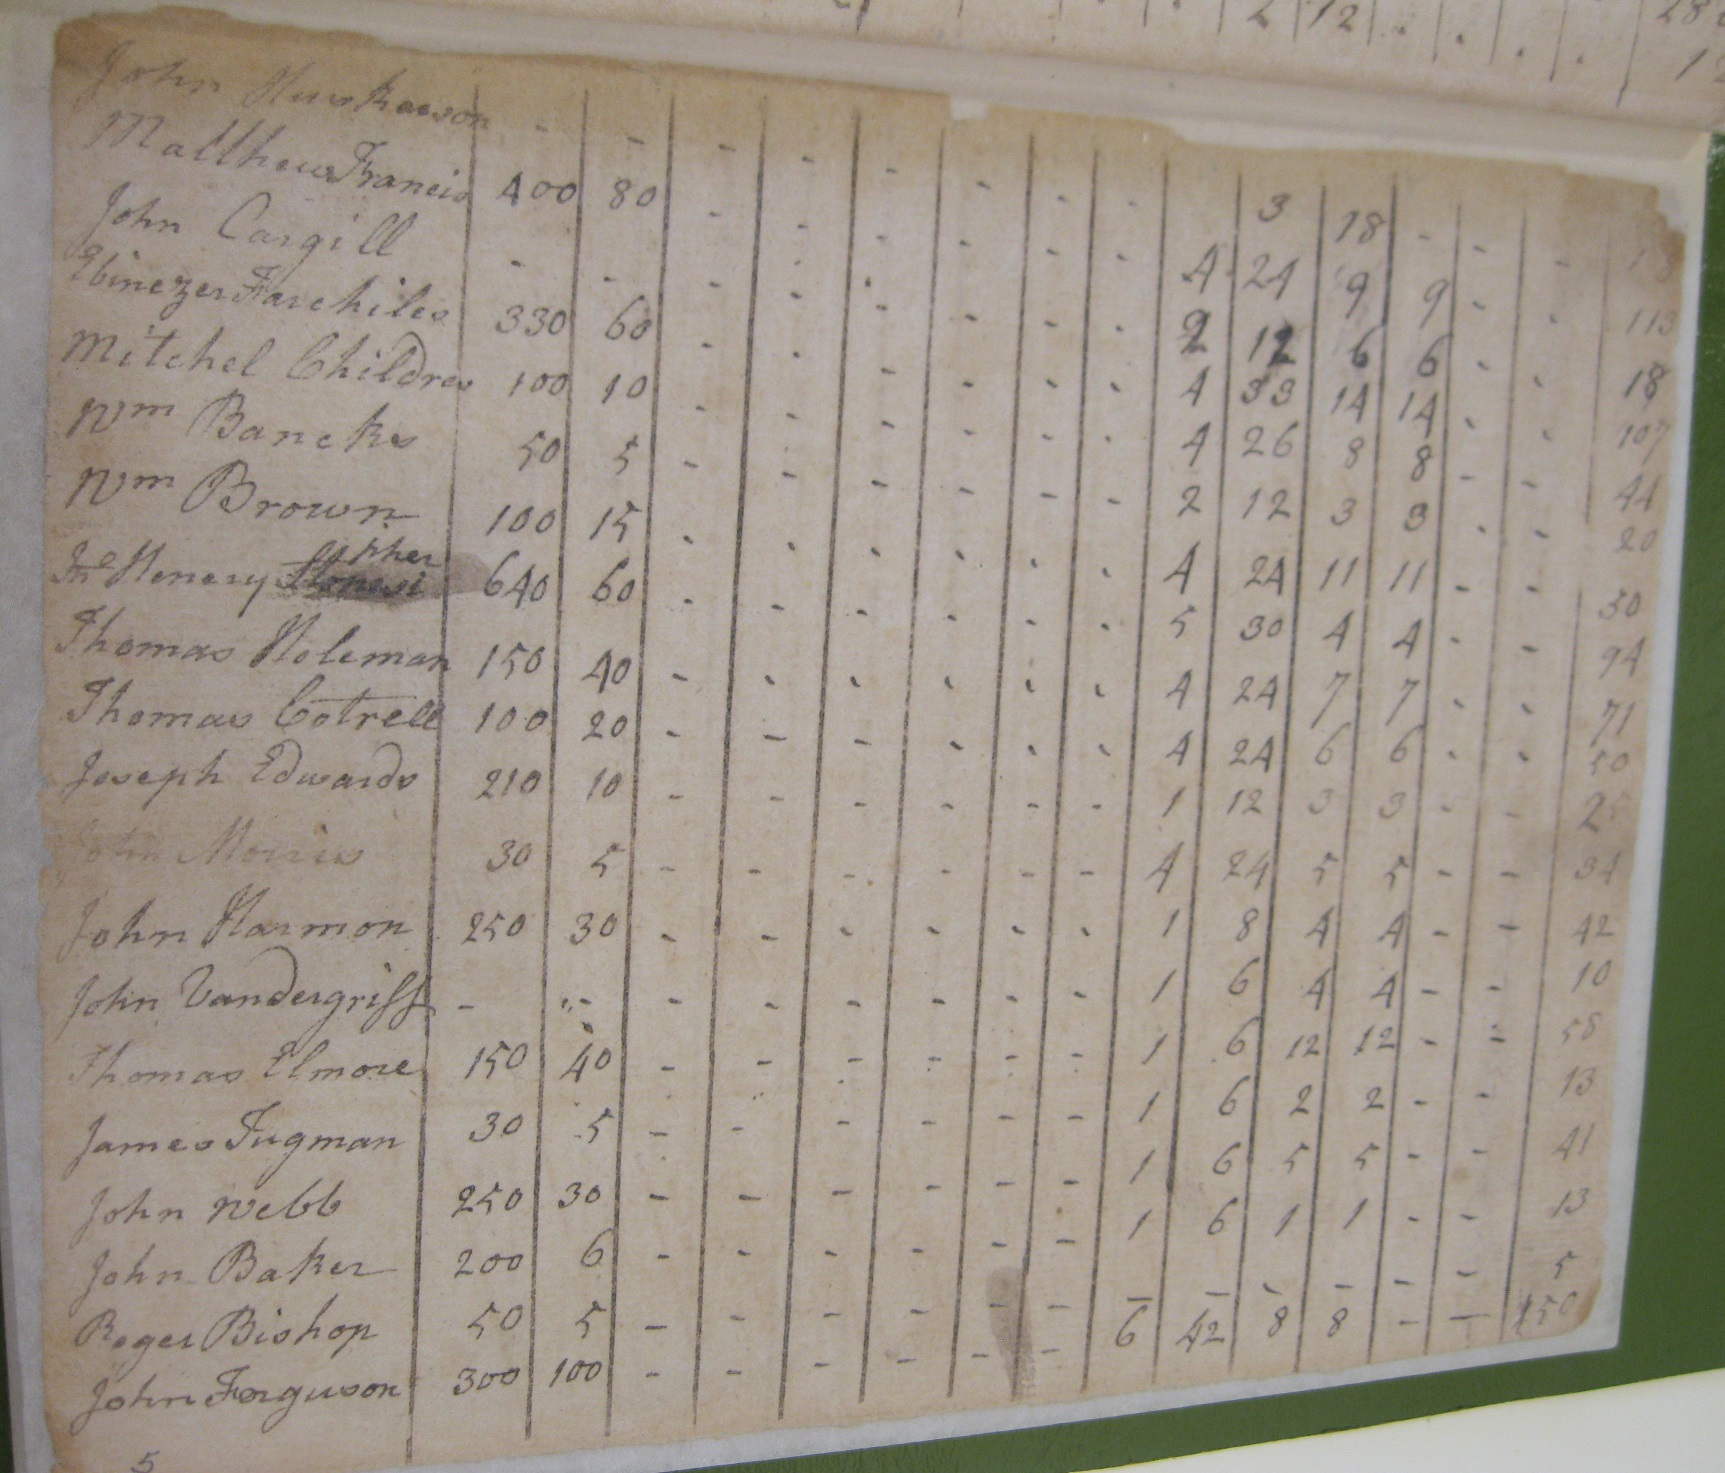 2 12 . . . . 28
12
John - - - - - - - - 3 18 - - -
Matthew Francis 400 80 - - - - - - 4 24 9 9 - - 113
John Cargill - - - - - - - - 2 12 6 6 - - 18
Ebinezer Farchiles 330 60 - - - - - - 4 33 14 14 - - 107
Mitchel Childres 100 10 - - - - - - 4 26 8 8 - - 44
Wm Bancks 50 5 - - - - - - 2 12 3 3 - - 20
Wm Brown 100 15 - - - - - - 4 24 11 11 - - 50
Henery 640 60 - - - - - - 5 30 4 4 - - 94
Thomas Holeman 150 40 - - - - - - 4 24 7 7 - - 71
Thomas Cotrell 100 20 - - - - - - 4 24 6 6 - - 50
Joseph Edwards 210 10 - - - - - - 1 12 3 3 - - 25
John Morris 30 5 - - - - - - 4 24 5 5 - - 34
John Harmon 250 30 - - - - - - 1 8 4 4 - - 42
John Vandergriff - - - - - - - - 1 6 4 4 - - 10
Thomas Elmore 150 40 - - - - - - 1 6 12 12 - - 58
James Tugman 30 5 - - - - - - 1 6 2 2 - - 13
John Webb 250 30 - - - - - - 1 6 5 5 - - 41
John Baker 200 6 - - - - - - 1 6 1 1 - - 13
Roger Bishop 50 5 - - - - - - - - - - - - 5
John Ferguson 300 100 - - - - - - 6 42 8 8 - - 150
5